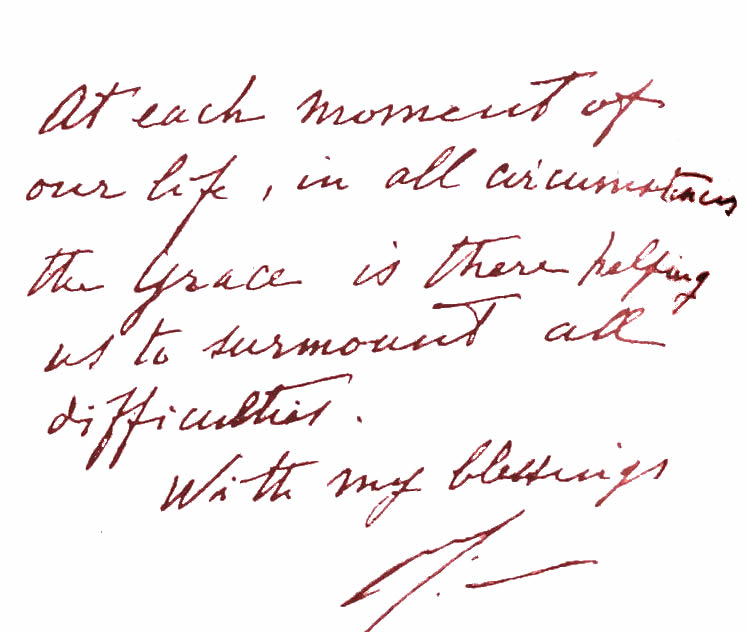 At each moment of
our life, in all circumstances
the Grace is there helping
us to surmount all
difficulties.
With my blessings